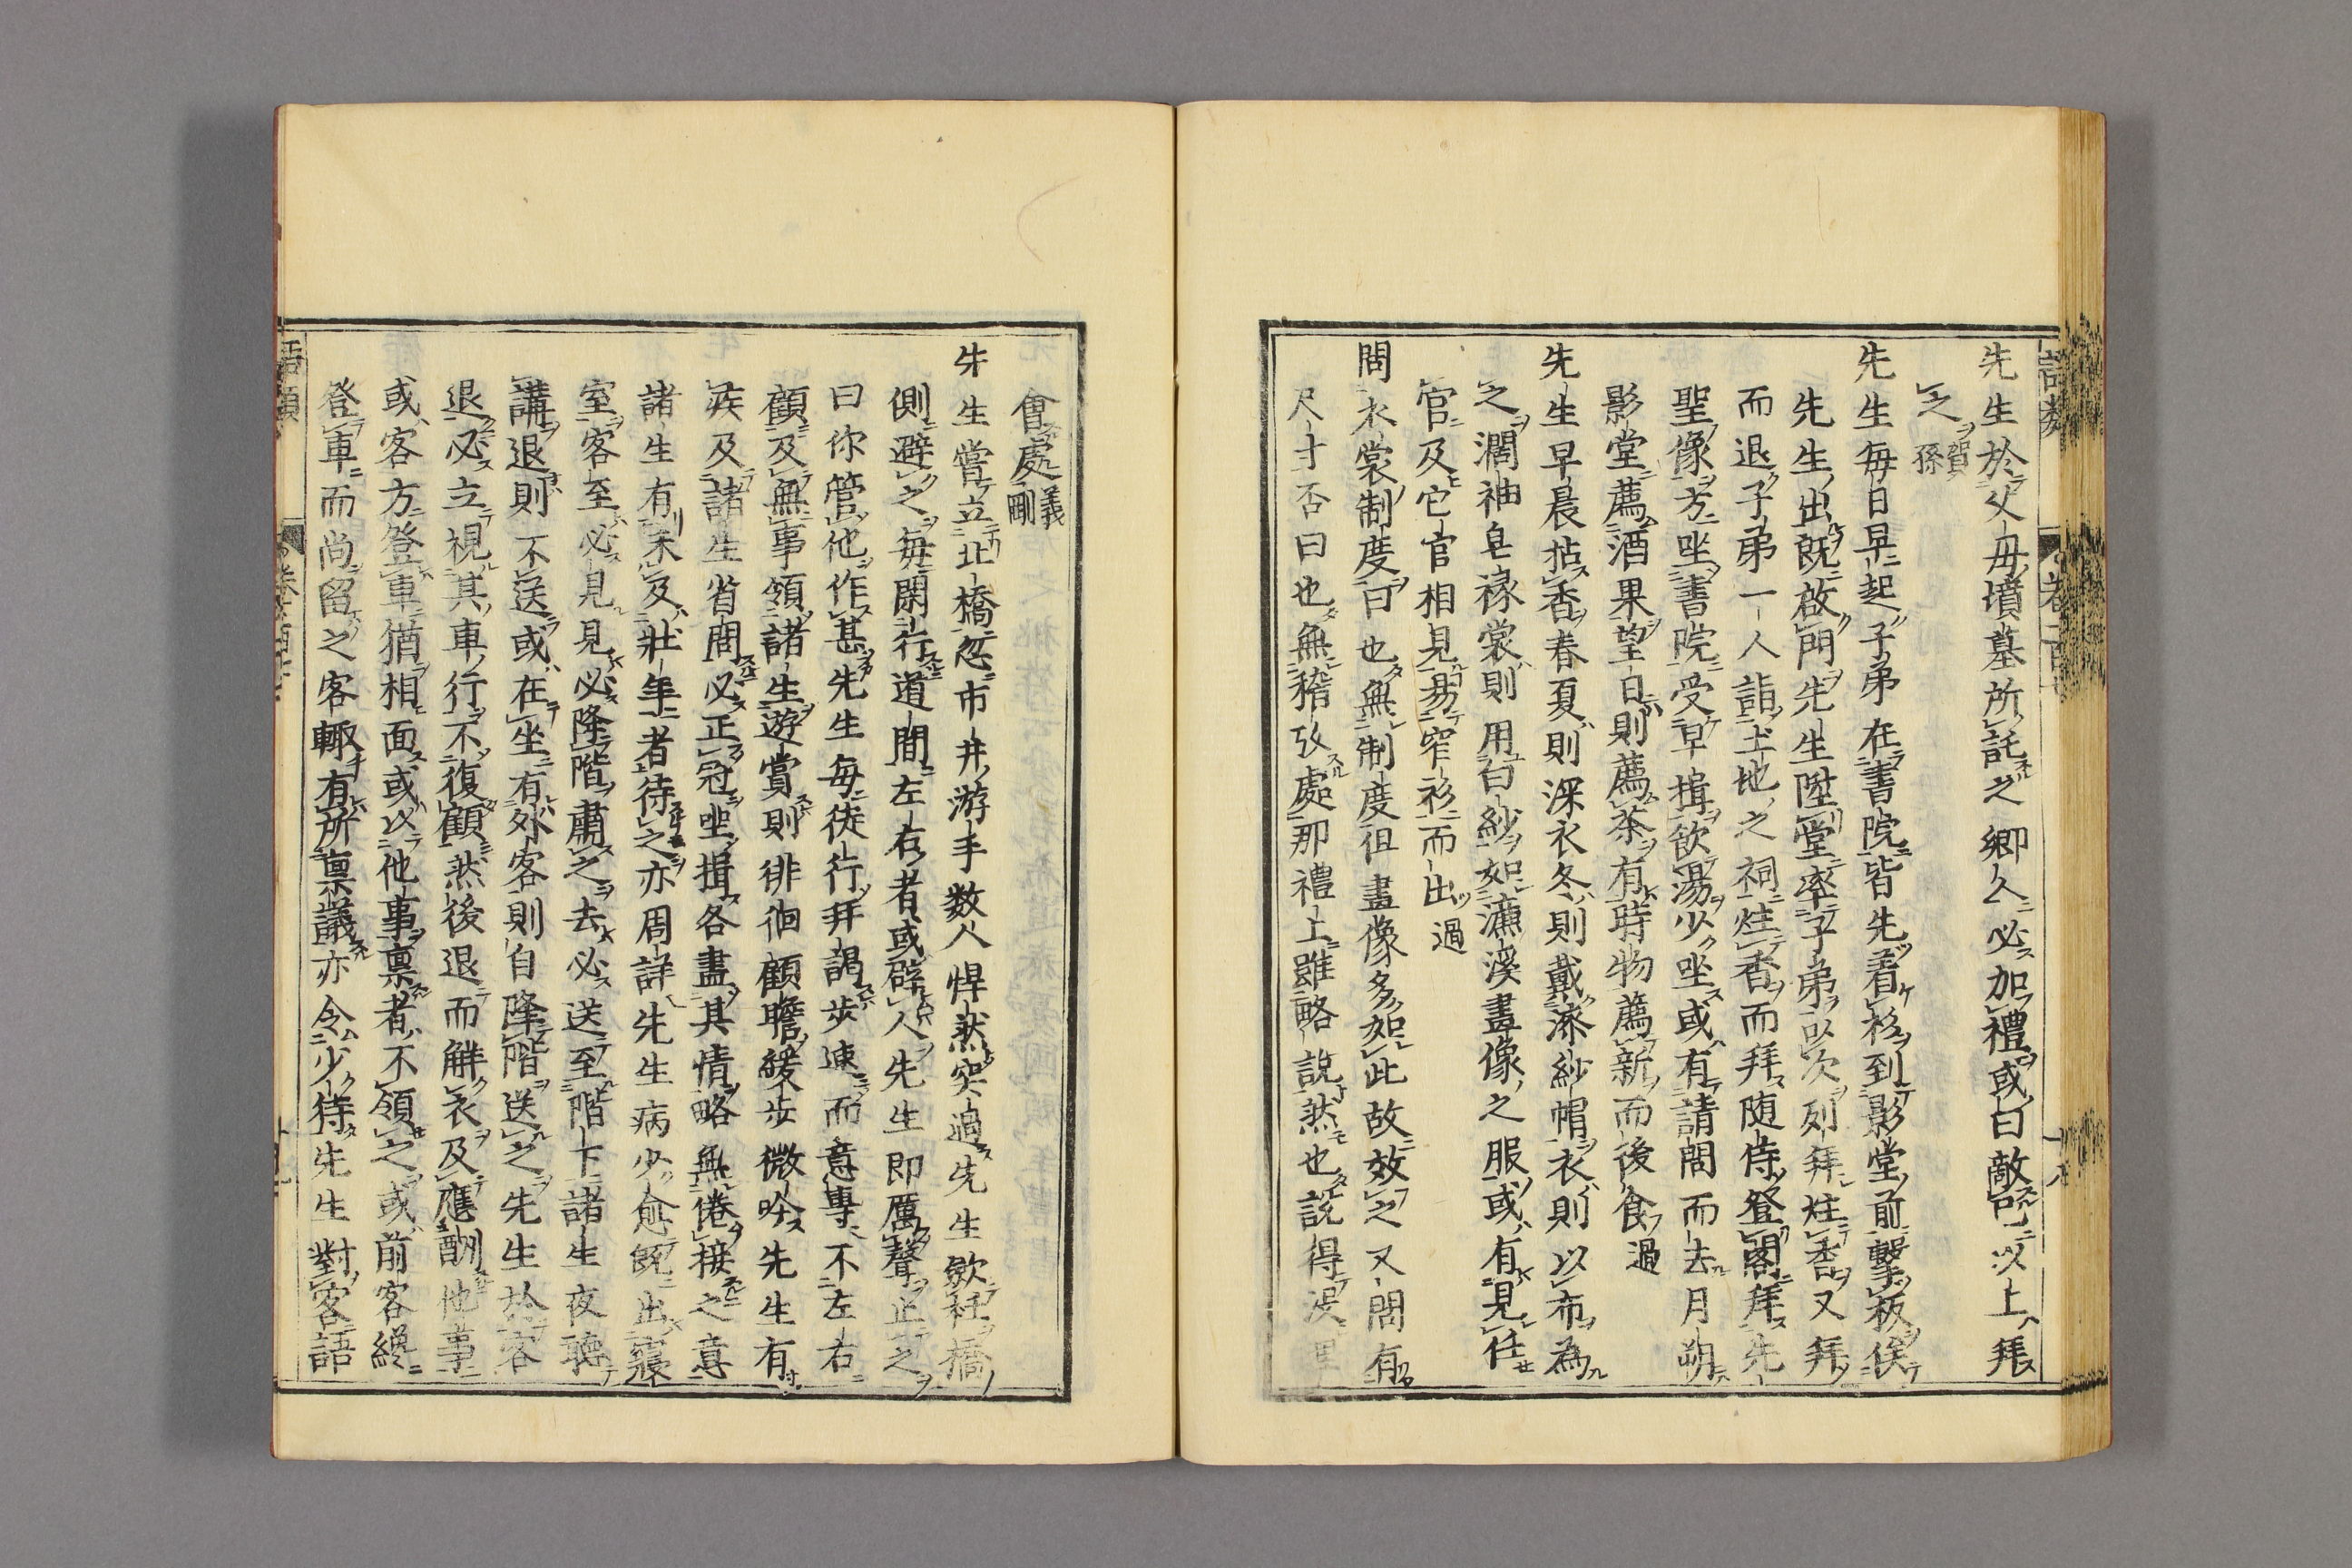 先生於父母墳墓所託之鄉人必加禮或曰敵已以上拜
之賀孫
先生每日早起子弟在書院皆先着衫到影堂前擊板俟
先生出既啟門先生陞堂率子弟以次列拜炷香又拜
而退子弟一人詣土地之祠炷香而拜随侍登閣拜先
聖像方坐書院受早揖飲湯少坐或有請問而去月朔
影堂薦酒果望日則薦茶有時物薦新而後食過
先生早晨拈香春夏則深衣冬則戴漆紗帽衣則以布為
之濶袖皂褖裳則用白紗如濂溪畫像之服或有見任
官及它官相見易窄衫而出過
問衣裳制度曰也無制度但畫像多如此故效之又問有
尺寸否曰也無稽攷處那禮上雖略說然也說得没理
會處義剛
先生嘗立北橋忽市井游手数人悍然突過先生斂衽橋
側避之每閑行道間左右者或辟人先生即厲聲止之
曰你管他作甚先生每徒行拜謁步速而意專不左右
顧及無事領諸生遊賞則徘徊顧瞻緩步微吟先生有
疾及諸生省問必正冠坐揖各盡其情略無倦接之意
諸生有未及壯年者待之亦周詳先生病少愈既出寢
室客至必見見必降階肅之去必送至階下諸生夜聽
講退則不送或在坐有外客則自降階送之先生於客
退必立視其車行不復顧然後退而解衣及應酬他事
或客方登車猶相面或以他事禀者不領之或前客纔
登車而尚留之客輙有所禀議亦令少待先生對客語